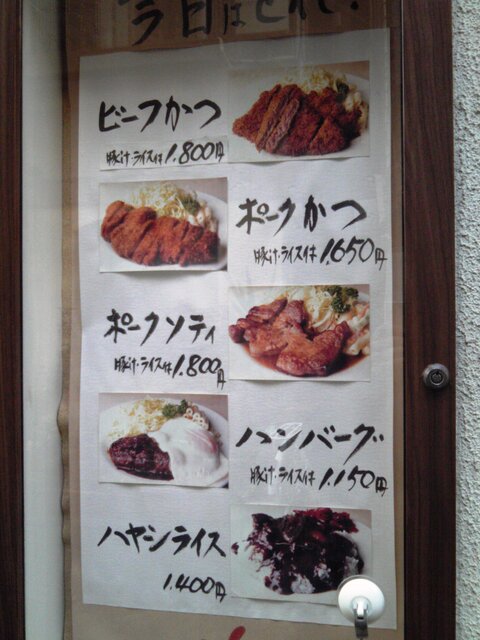 今日はどれで!
ビーフかつ
豚汁・ライス付 1,800円
ポークかつ
豚汁・ライス付 1,650円
ポークソティ
豚汁・ライス付 1,800円
ハンバーグ
豚汁・ライス付 1,150円
ハヤシライス
1,400円